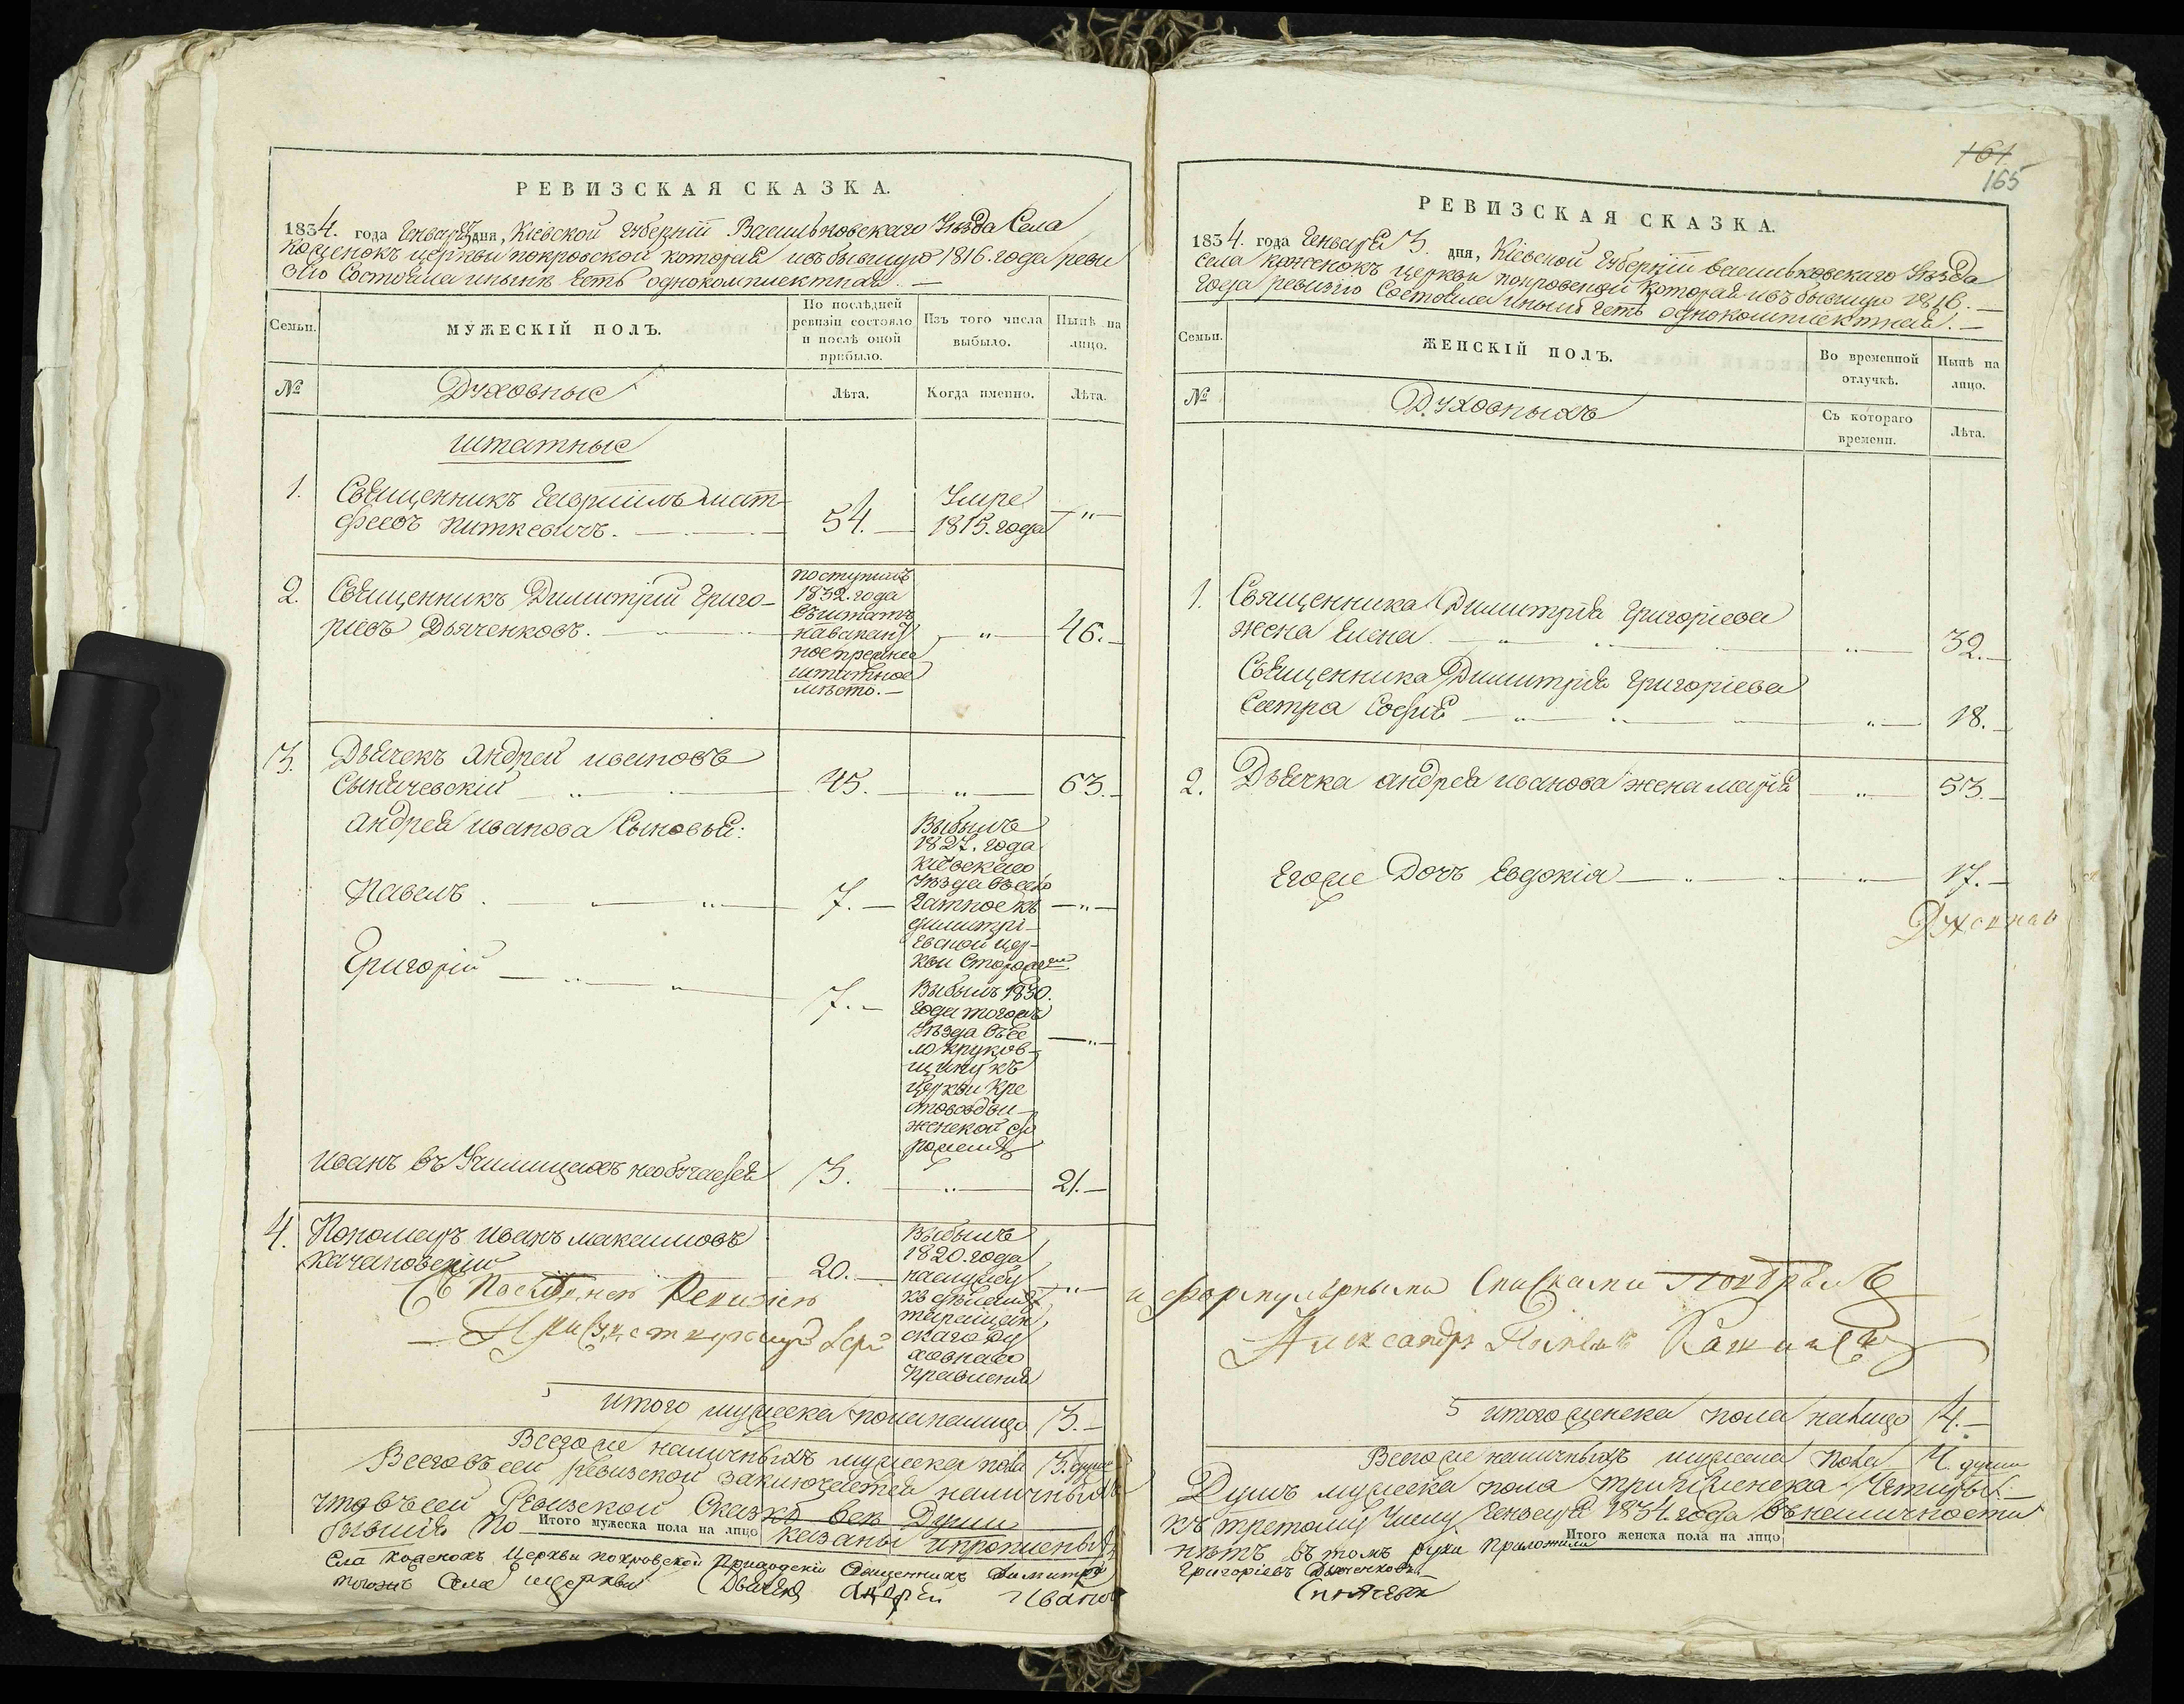 РЕВИЗСКАЯ СКАЗКА.
1834. года Генваря 3 дня, Кіевской Губерніи Васильковскаго Уѣзда Села
Коженокъ церкви покровской которая въ бывшую 1816. года реви
зію Состояла инынѣ Есть однокомплектная. —
Семьи.
МУЖЕСКІЙ ПОЛЪ.
По послѣдней
ревизіи состояло
и послѣ оной
прибыло.
Изъ того числа
выбыло.
Нынѣ на
лицо.
№
Духовные
Лѣта.
Когда именно.
Лѣта.
штатные
1. Священникъ Гавріилъ Мат-
фѣевъ Питкевичъ. 54. Умре
1815. года — " —
2. Священникъ Димитрій Григо-
ріевъ Дьяченковъ. — " — 46. —
поступилъ
1832. года
штатное
мѣсто. —
3. Дьячекъ Андрей ивановъ
Сынячевскій 45. — " — 63. —
Андрея иванова Сыновья:
Павелъ 7. — — " —
Выбылъ
1827. года
Кіевскаго
Уѣзда въ село
Гатное къ
димитрі-
евской цер-
кви
Григорій 7. — — " —
Выбылъ 1830.
года тогожъ
Уѣзда въ Се
ло Круков-
щину къ
Церкви Кре
стовоздви-
женской
иванъ въ Училищахъ необучался 3. — " — 21. —
4. Пономарь иванъ максимовъ
Качановскій 20. — — " —
Выбылъ
1820. года
наслужбу
къ дѣламъ
таращан
скаго ду
ховнаго
Правленія
Съ Ревизіею
итого мужеска пола налицо 3. —
Всегоже наличныхъ мужеска пола 3. души
Всего въ сей ревизской заключается наличныхъ
что въ сей Ревизской Сказкѣ всѣ Души
бывшія по
Итого мужеска пола на лицо
казаны
Села Коженокъ Церкви покровской Приходскій Священникъ Димитрій
тогожъ Села церкви Дьячекъ Андрей Ивановъ
161
165
РЕВИЗСКАЯ СКАЗКА.
1834. года Генваря 3. дня, Кіевской Губерніи васильковскаго Уѣзда
Села Коженокъ церкви покровской которая въ бывшую 1816. —
Года ревизію Состояла инынѣ есть однокомплектная. —
Семьи.
ЖЕНСКІЙ ПОЛЪ.
Во временной
отлучкѣ.
Нынѣ на
лицо.
№
Духовныхъ
Съ котораго
времени.
Лѣта.
1. Священника Димитрія Григоріева
жена Елена — " — 32. —
Священника Димитрія Григоріева
Сестра Софія — " — 18. —
2. Дьячка андрея иванова жена марія — " — 53. —
Егоже Дочь Евдокія — " — 17. —
и формулярными Списками
Александръ
итого женска пола налицо 4. —
Всегоже наличныхъ пола 4. души
Душъ мужеска пола три женска Четыре
къ третому Числу Генваря 1834. года въ наличности
нѣтъ въ томъ руки приложили
Итого женска пола на лицо
Григоріевъ Дьяченковъ